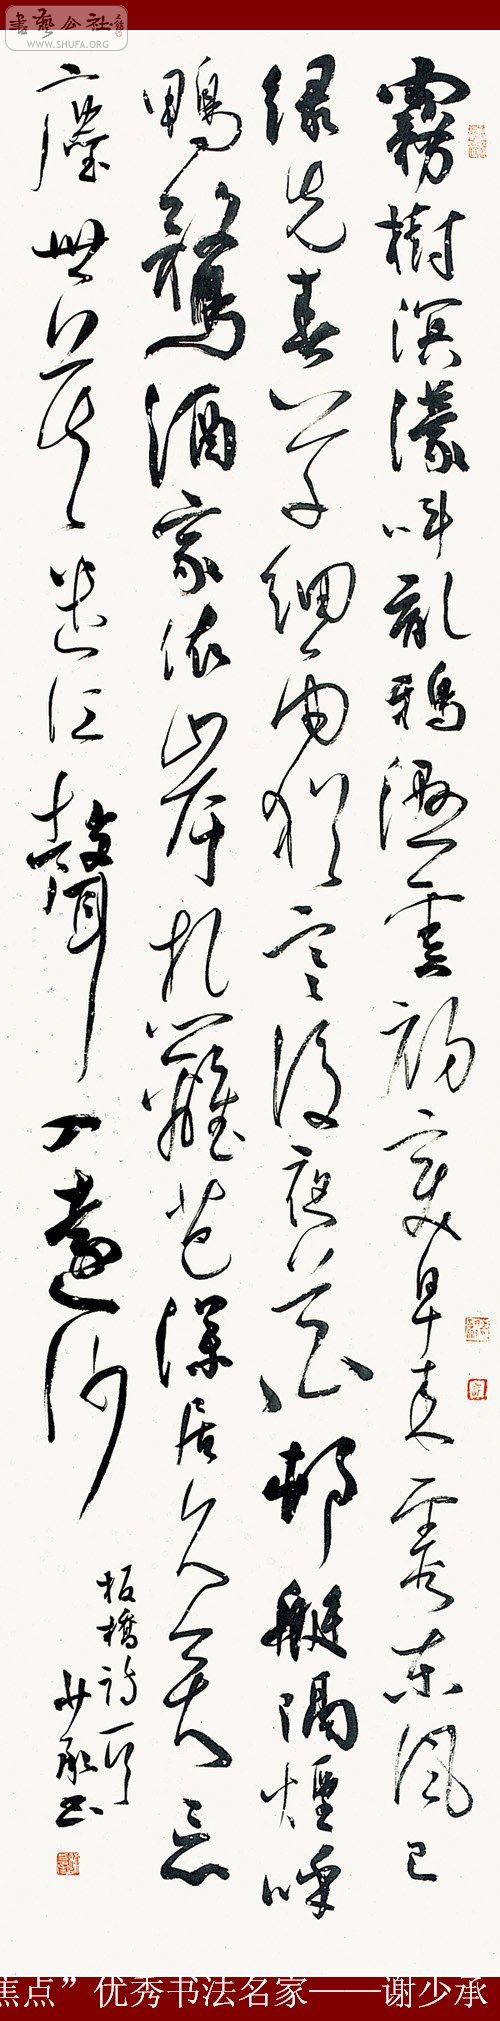 書藝公社
WWW.SHUFA.ORG
霧樹溟濛叫亂鴉濕雲初變早來霞東風已
緑先春草細雨猶寒後夜花邨艇隔煙呼
鴨鶩酒家依岸扎籬笆深居久矣忘
塵世莫遣江聲入遠沙
板橋詩一首
少承書
焦点”优秀书法名家——谢少承